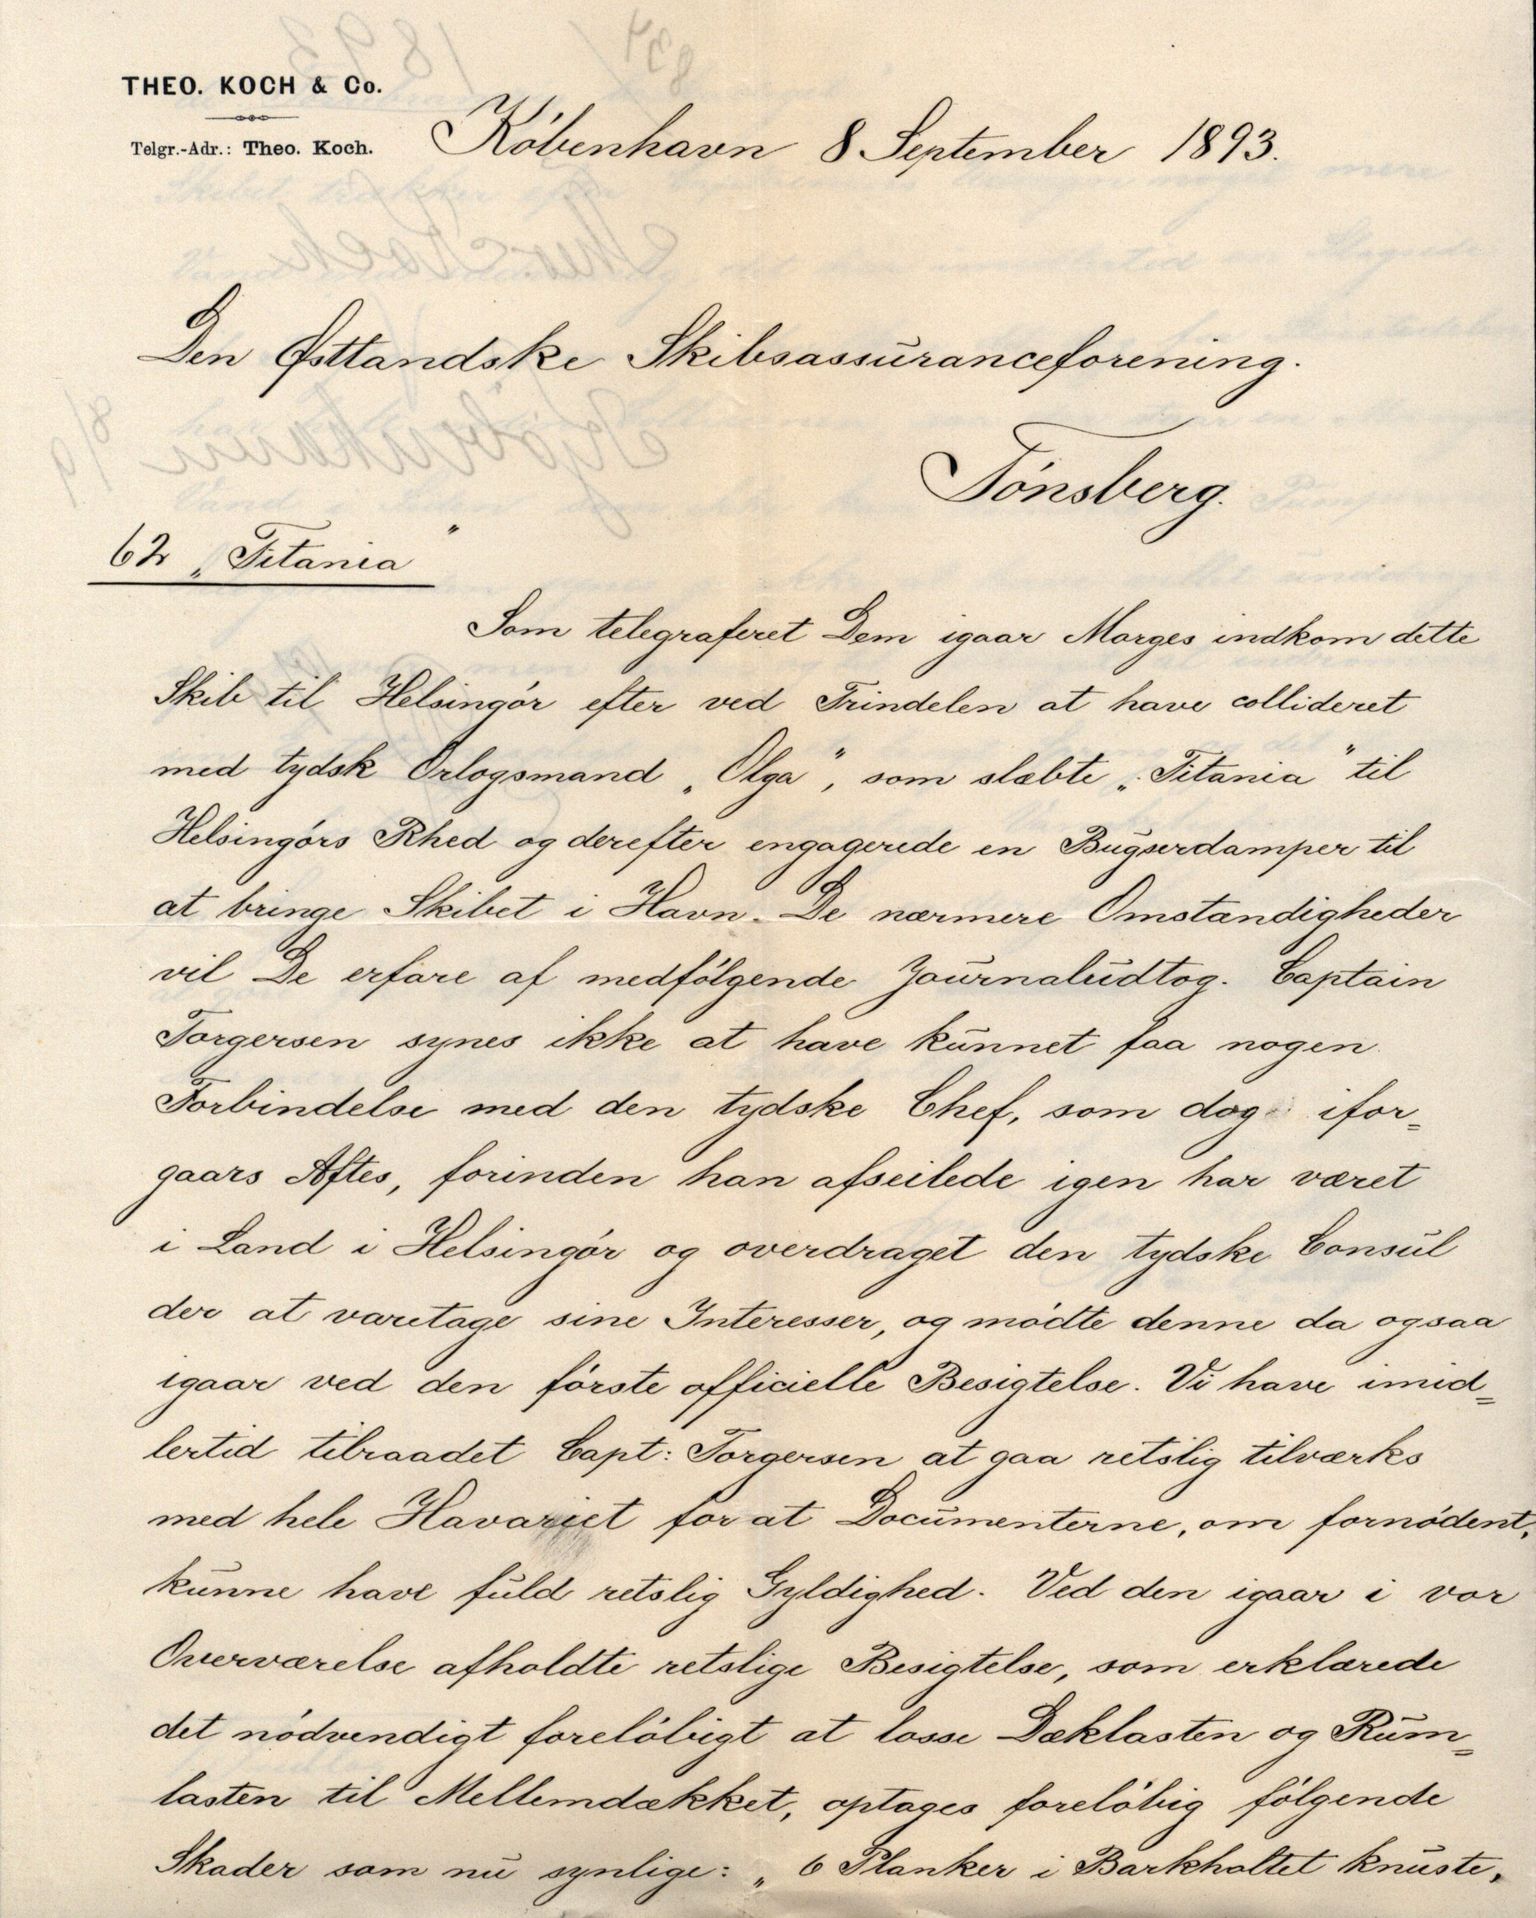 THEO. KOCH & Co.
Telgr.-Adr.: Theo. Koch.
København 8 September 1893.
Den Østlandske Skibsassuranceforening.
Tönsberg.
62 „Titania"
Som telegraferet Dem igaar Morges indkom dette
Skib til Helsingör efter ved Trindelen at have collideret
med tydsk Orlogsmand „Olga", som slæbte „Titania" til
Helsingörs Rhed og derefter engagerede en Bugserdamper til
at bringe Skibet i Havn. De nærmere Omstændigheder
vil De erfare af medfölgende Journaludtog. Captain
Torgersen synes ikke at have kunnet faa nogen
Forbindelse med den tydske Chef, som dog ifor=
gaars Aftes, forinden han afseilede igen har været
i Land i Helsingör og overdraget den tydske Consul
der at varetage sine Interesser, og mödte denne da ogsaa
igaar ved den förste officielle Besigtelse. Vi have imid=
lertid tilraadet Capt: Torgersen at gaa retslig tilværks
med hele Havariet for at Documenterne, om fornödent,
kunne have fuld retslig Gyldighed. Ved den igaar i vor
Overværelse afholdte retslige Besigtelse, som erklærede
det nödvendigt forelöbigt at losse Dæklasten og Rum=
lasten til Mellemdækket, optages forelöbig fölgende
Skader som nu synlige: „6 Planker i Barkholtet knuste,